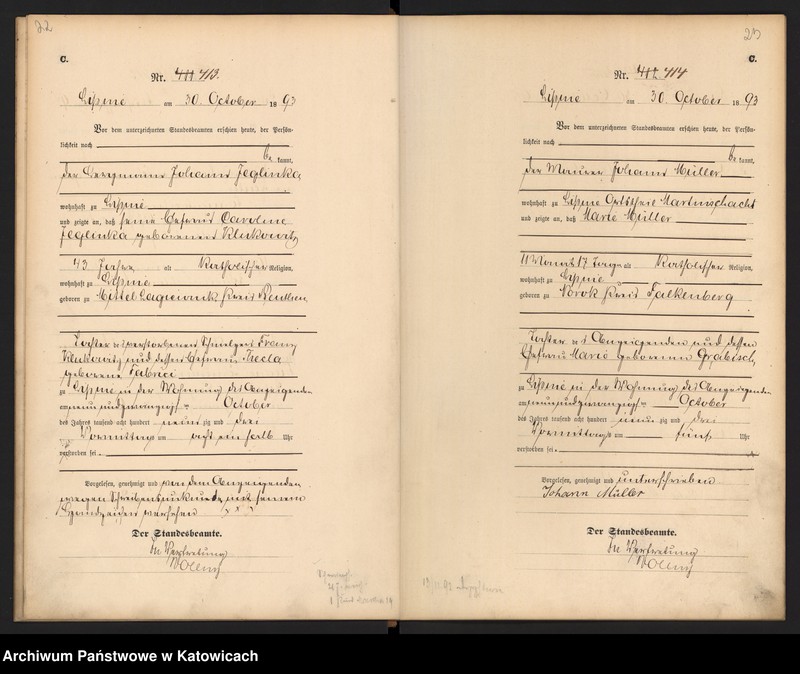 22
C.
Nr. 411 413.
Lipine am 30 October 1893
Vor dem unterzeichneten Standesbeamten erschien heute, der Persön-
lichkeit nach
be kannt,
der Bergmann Johann Jeglinka
wohnhaft zu Lipine
und zeigte an, daß seine Ehefrau Caroline
Jeglinka geborenen Klukowitz
43 Jahre alt Katholischer Religion,
wohnhaft zu Lipine
geboren zu Mittel Lagiewnik Kreis Beuthen
Tochter des verstorbenen Franz
Klukowitz und dessen Ehefrau Thecla
geborene Fabrici
zu Lipine in der Wohnung des Anzeigenden
am neun und zwanzigsten October
des Jahres tausend acht hundert neun zig und drei
Vormittags um acht ein halb Uhr
verstorben sei.
Vorgelesen, genehmigt und von dem Anzeigenden
wegen Schreibensunkunde mit seinem
Handzeichen versehen x x x
Der Standesbeamte.
In Vertretung
23
C.
Nr. 412 414
Lipine am 30 October 1893
Vor dem unterzeichneten Standesbeamten erschien heute, der Persön-
lichkeit nach
be kannt,
der Maurer Johann Müller
wohnhaft zu Lipine Ortstheil Martinschacht
und zeigte an, daß Marie Müller
11 Monat 17 Tage alt Katholischer Religion,
wohnhaft zu Lipine
geboren zu Norok Kreis Falkenberg
Tochter des Anzeigenden und dessen
Ehefrau Marie geborenen Grabisch
zu Lipine in der Wohnung des Anzeigenden
am neun und zwanzigsten October
des Jahres tausend acht hundert neun zig und drei
Vormittags um fünf Uhr
verstorben sei.
Vorgelesen, genehmigt und unterschrieben
Johann Müller
Der Standesbeamte.
In Vertretung
Archiwum Państwowe w Katowicach